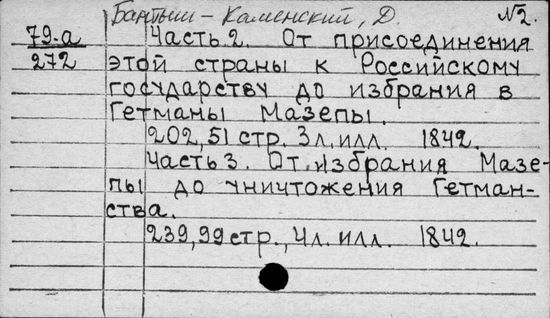 Бантыш-Каменский, Д. №2.
79-а Часть 2. От присоединения
272 этой страны к Российскому
государству до избрания в
Гетманы Мазепы.
202, 51 стр. 3 л. илл. 1842.
Часть 3. От избрания Мазе-
пы до уничтожения Гетман-
ства.
239, 99 стр., 4 л. илл. 1842.